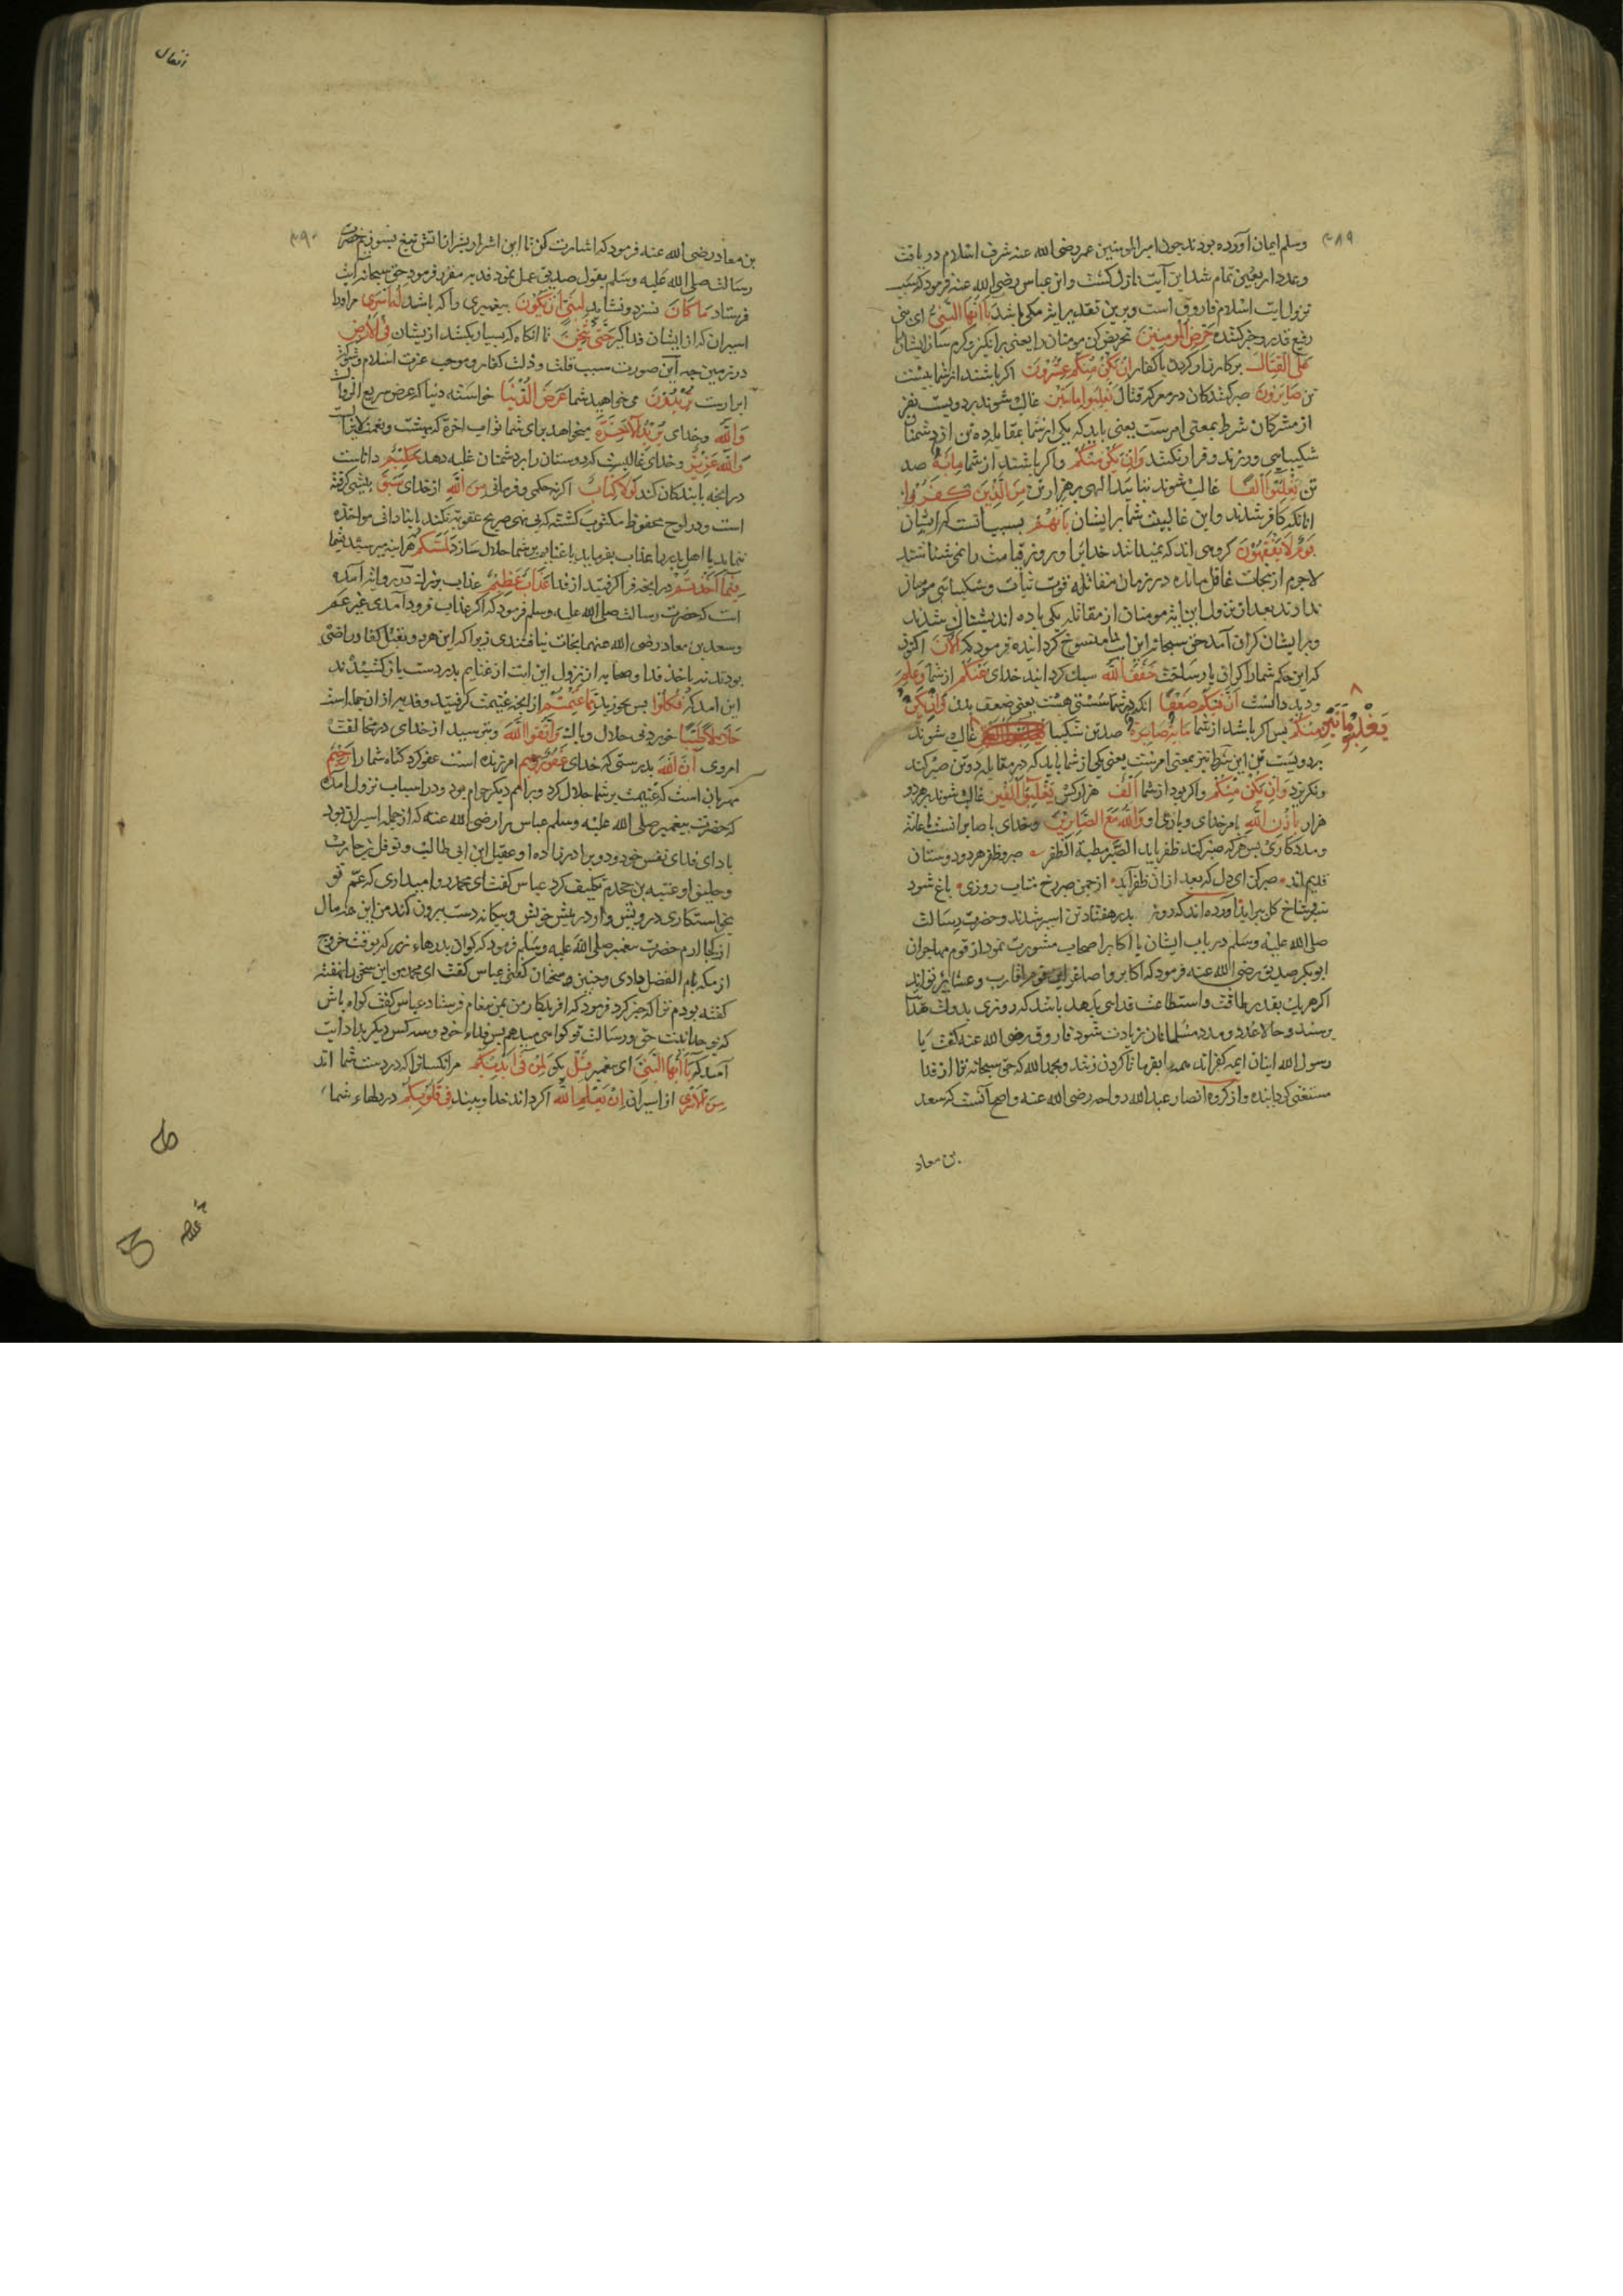 ۴۸۹
وسلم ایمان آورده بودند چون امیر المومنین عمر رضی الله عنه شرف اسلام دریافت
وعدد اربعین تمام شد این آیت نازل کشت وابن عباس رضی الله عنه فرمود که سبب
نزول ایت اسلام فاروق است وبرین تقدیر ایت مکی باشد یا ایها النبی ای نبی
رفیع قدر وخبر کننده حرض المومنین تحریض کن مومنان را یعنی برانکیز وکرم ساز ایشانرا
علی القتال برکارزار کردن با کفار ان یکن منکم عشرون اکر باشند از شما بیست
تن صابرون صبر کنندکان در معرکه قتال یغلبوا ماتین غالب شوند بر دویست نفر
از مشرکان شرط بمعنی امرست یعنی باید که یکی از شما بمقابله ده تن از دشمنان
شکیبایی ورزند وفرار نکنند وان یکن منکم واکر باشند از شما مایة صد
تن یغلبوا الفا غالب شوند بتایید الهی بر هزار تن من الذین کفروا از
انانکه کافر شدند واین غالبیت شما بر ایشان بانهم بسبب انست که ایشان
قوم لا یفقهون کروهی اند که نمیدانند خدایرا وروز قیامت را نمی شناسند
لاجرم از نجات غافل در زمان مقاتله قوت ثبات وشکیبایی مومنان
ندارند بعد از نزول این ایت مومنان از مقاتله یکی با ده اندیشناک شدند
وبر ایشان کران آمد حق سبحانه این ایت را منسوخ کردانیده فرمود که الان اکنون
که این حکم شما را کرانی بار ساخت خفف الله سبک کردانید خدای عنکم از شما وعلم
ودید ودانست ان فیکم ضعفا انکه در شما سستی هست یعنی ضعف بدن فان یکن
منکم پس اکر باشد از شما مائة صابرة صد تن شکیبا یغلبوا ماتین غالب شوند
بر دویست تن این شرط نیز بمعنی امرست یعنی یکی از شما باید که در مقابله دو تن صبر کند
ونکریزد وان یکن منکم واکر بود از شما الف هزار کس یغلبوا الفین غالب شوند بر دو
هزار باذن الله بامر خدای ویاری او والله مع الصابرین وخدای با صابرانست باعانة
ومددکاری پس هرکه صبر کند ظفر یابد الصبر مطیة الظفر صبر وظفر هر دو دوستان
قدیم اند صبر کن ای دل که بعد از ان ظفر آید از چمن صبر رخ متاب روزی باغ شود
سبز شاخ کل ببر آید آورده اند که روز بدر هفتاد تن اسیر شدند وحضرت رسالت
صلی الله علیه وسلم در باب ایشان با اکابر اصحاب مشورت نمود از قوم مهاجران
ابوبکر صدیق رضی الله عنه فرمود که اکابر واصاغر این قوم اقارب وعشایر تو اند
اکر هر یک بقدر طاقت واستطاعت فدایی بدهد باشد که روزی بدولت هدایت
برسند وحالا عدد ومدد مسلمانان زیادت شود فاروق رضی الله عنه کفت یا
رسول الله اینان ایمه کفراند همه را بفرما تا کردن زنند وبحمد الله که حق سبحانه ترا از فدا
مستغنی کردانیده واز کروه انصار عبد الله رواحه رضی الله عنه واصح آنست که سعد
بن معاد
انفال
۴۹۰
بن معاد رضی الله عنه فرمود که اشارت کن تا این اشرار بشرار اتش تیغ بسوزیم حضرت
رسالت صلی الله علیه وسلم بقول صدیق عمل نمود فدیه مقرر فرمود حق سبحانه ایت
فرستاد ما کان نسزد ونشاید لنبی ان یکون پیغمبری را که باشد له اسری مر اورا
اسیران که از ایشان فدا کیرد حتی یثخن تا انکاه که بسیار بکشد از یشان فی الارض
در زمین چه این صورت سبب قلت وذلت کفار وموجب عزت اسلام وشوکت
ابرارست تریدون می خواهید شما عرض الدنیا خواسته دنیا که عرض سریع الزوال
والله وخدای یرید الاخرة میخواهد برای شما ثواب اخرة که بهشت ونعمت
والله عزیز وخدای غالبست که دوستان را بر دشمنان غلبه دهد حکیم داناست
در انچه با بندکان کند لولا کتاب اکر نه حکمی وفرمانی من الله از خدای سبق پیشی کرفته
است ودر لوح محفوظ مکتوب کشته که بی نهی صریح عقوبت نکند یا بنادانی مواخذه
ننماید یا اهل بدر را عذاب نفرماید یا غنایم بر شما حلال سازد لمسکم هر اینه میرسید شما
فیما اخذتم در انچه فرا کرفتید از فدا عذاب عظیم عذاب بزرک در روایت آمده
است که حضرت رسالت صلی الله علیه وسلم فرمود که اکر عذاب فرود آمدی غیر عمر
وسعد بن معاد رضی الله عنهما نجات نیافتندی زیرا که این هر دو بقتل کفار راضی
بودند نه باخذ فدا وصحابه از نزول این ایت از غنایم بدر دست باز کشیدند
این امد که فکلوا پس بخورید مما غنمتم از انچه غنیمت کرفتید وفدیه از ان جمله است
حلالا طیبا خوردنی حلال وپاک واتقوا الله وبترسید از خدای در مخالفت
امر وی ان الله بدرستی که خدای غفور امرزنده است عفو کرد کناه شما را رحیم
مهربان است که غنیمت بر شما حلال کرد وبر امم دیکر حرام بود ودر اسباب نزول امده
که حضرت پیغمبر صلی الله علیه وسلم عباس را رضی الله عنه که از جمله اسیران بود
بادای فدای نفس خود ودو برادر زاده او عقیل ابن ابی طالب ونوفل بن حارث
وحلیف او عتبه بن جحدم تکلیف کرد عباس کفت ای محمد روا میداری که عم تو
بخواستکاری در ویش واز در پیش خویش وبیکانه دست بیرون کند من این همه مال
از کجا ارم حضرت پیغمبر صلی الله علیه وسلم فرمود که کو ان بدرهاء زر که بوقت خروج
از مکه بام الفضل دادی وچنین وچنین سخنان کفتی عباس کفت ای محمد من این سخن را نهفته
کفته بودم ترا که خبر کرد فرمود که افریدکار من بمن پیغام فرستاد عباس کفت کواه باش
که بوحدانیت حق ورسالت تو کواهی میدهم پس فداء خود وسه کس دیکر بداد ایت
آمد که یا ایها النبی ای پیغمبر قل بکو لمن فی ایدیکم مر انکسانرا که در دست شما اند
من الاسری از اسیران ان یعلم الله اکر داند خدا وبیند فی قلوبکم در دلهاء شما